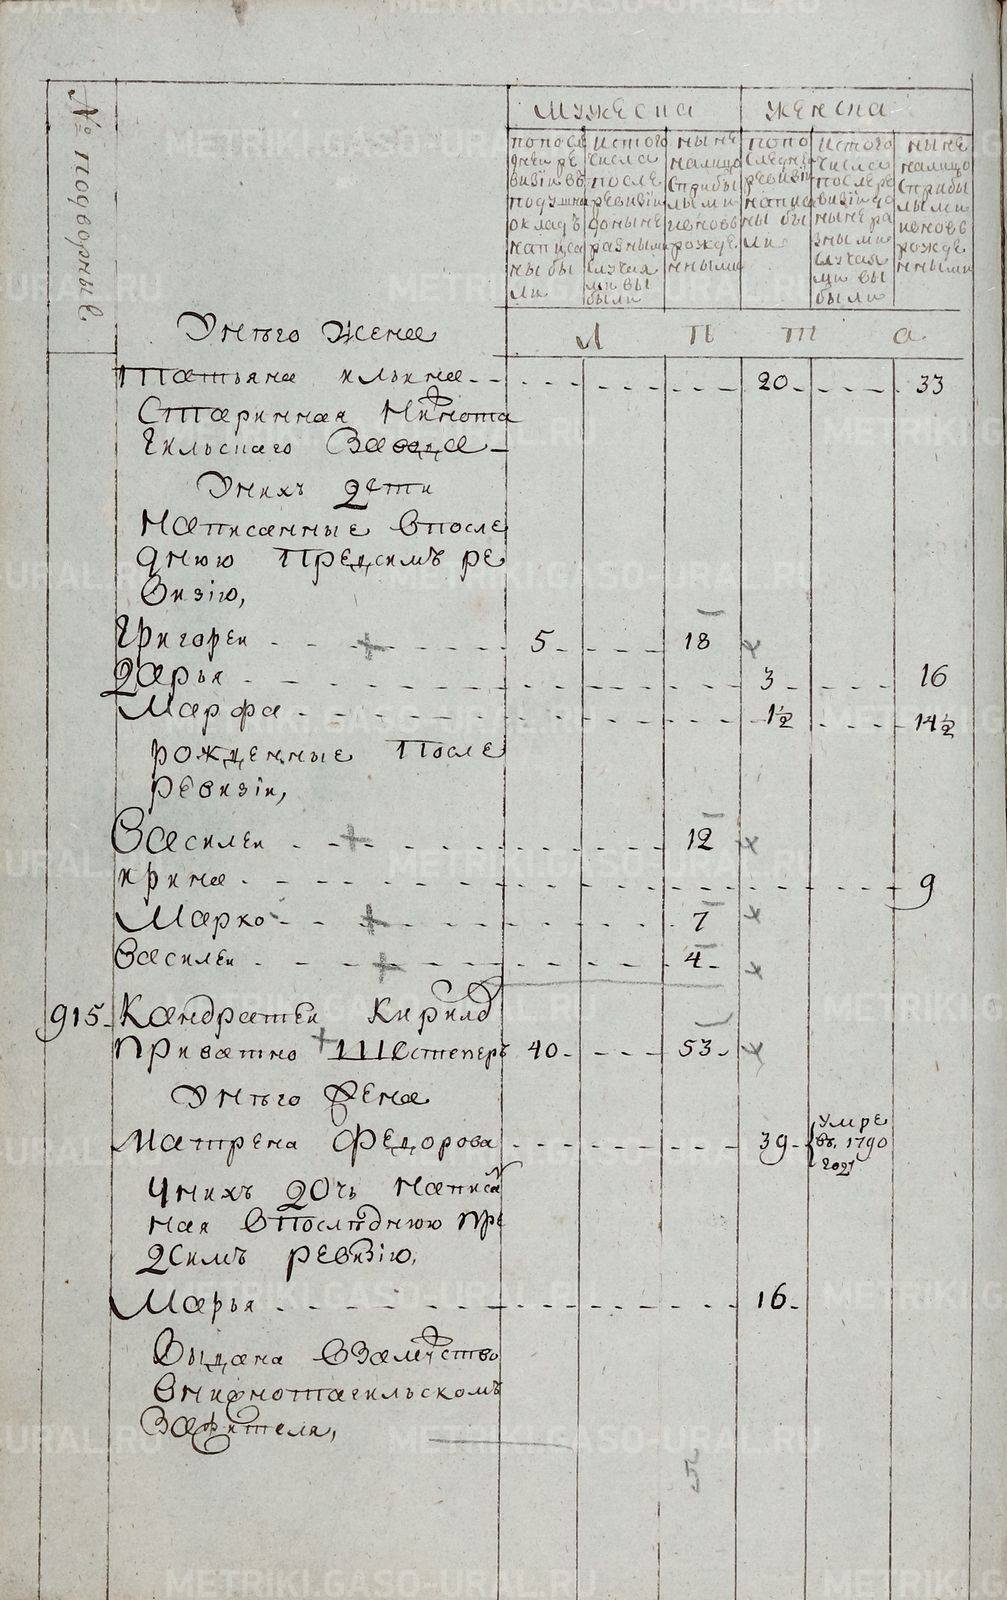 № подворные
Мужеска
женска
попосле
днеи ре
визiи въ
подушна
окладъ
написа
ны бы
ли
истого
числа
после
ревизiи
доныне
разными
случая
ми вы
были
ныне
налицо
сприбы
лыми
ивновь
рожде
нными
попо
следнеи
ревизiи
написа
ны бы
ли
истого
числа
послере
визiи до
ныне ра
зными
случая
ми вы
были
ныне
налицо
сприбы
лыми
ивновь
рожде
нными
Л П т а
Унѣго жена
Татьяна ильина 20 33
Старинная Нижнота
гильскаго Завода
Унихъ дети
написанные впосле
днюю предсимъ ре
визiю,
Григореи 5 18
Дарья 3 16
Марфа 1½ 14½
рожденные после
ревизiи,
Василеи 12
ирина 9
Марко 7
Василеи 4
915 Кандратеи Кирилъ
Приватно Шестеперъ 40 53
Унѣго жена
Матрена Федорова 39 Умре
въ 1790
году
Унихъ дочь написан
ная впослѣднюю пре
дсимъ ревизiю,
Марья 16
Выдана взамужство
внижнотагильскомъ
Зажителя,